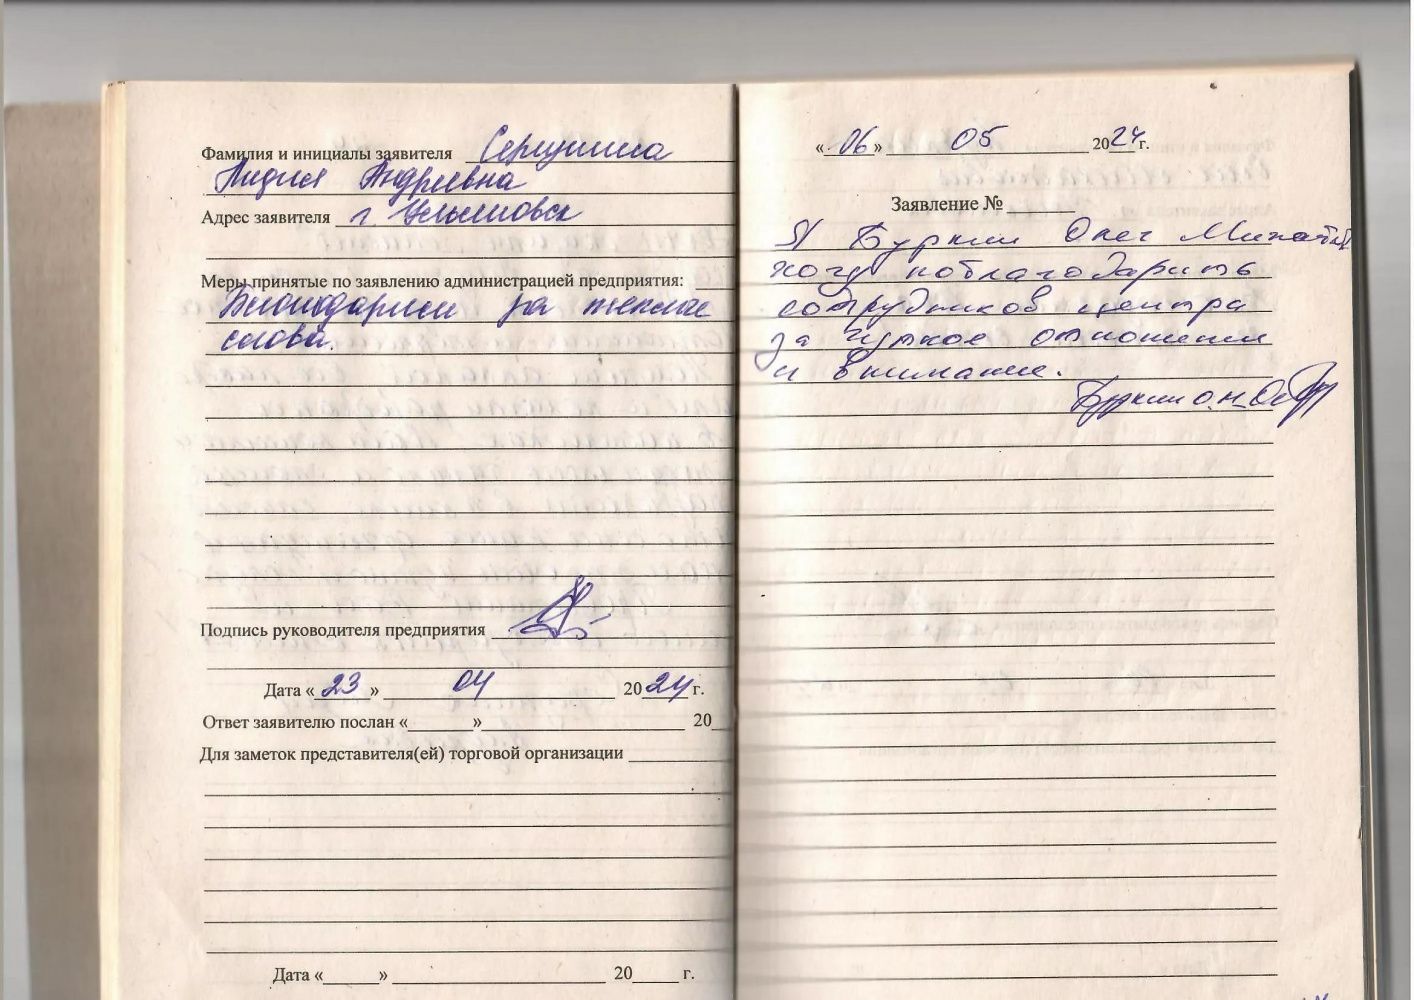 Фамилия и инициалы заявителя
Лидия Андреевна
Адрес заявителя г. Ульяновск
Меры принятые по заявлению администрацией предприятия:
Благодарим за теплые
слова.
Подпись руководителя предприятия
Дата «23» 04 2024 г.
Ответ заявителю послан «______»______ 20
Для заметок представителя(ей) торговой организации
Дата «_____» ______ 20_____ г.
«06» 05 2024 г.
Заявление №
Я Буркин Олег
хочу поблагодарить
сотрудников центра
за чуткое отношение
и внимание.
Буркин О.М.